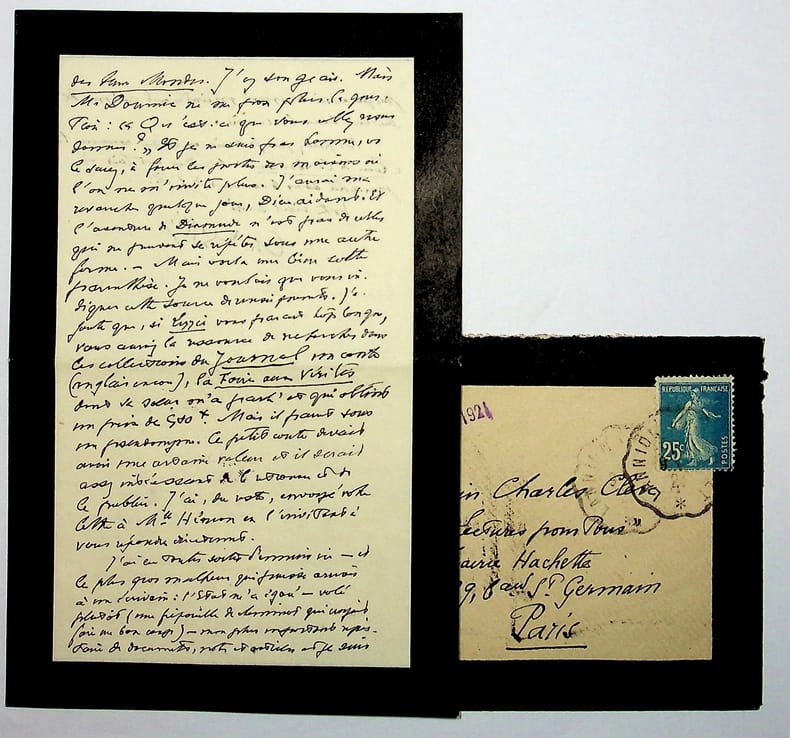 des Deux Mondes. J'y songeais. Mais
M. Doumic ne me fera plus la ques-
tion : " Qu'est-ce que vous allez nous
donner ? " Et je ne suis pas homme, vs
le savez, à forcer les portes des maisons où
l'on ne m'invite plus. J'aurai ma
revanche quelque jour, Dieu aidant. Et
l'aventure de Dixmude n'est pas de celles
qui ne peuvent se répéter sous une autre
forme. — Mais voilà une bien
parenthèse. Je ne voulais que vous in-
diquer cette source de renseignements. J'a-
joute que, si Lizzie vous paraît trop longue,
vous auriez la ressource de rechercher dans
les collections du Journal un conte
(anglais encore), la Foire aux Vérités
dont le sclar on'a parlé et qui obtint
un prix de 500 f. Mais il parut sous
un pseudonyme. Ce petit conte devait
avoir une certaine valeur et il serait
assez intéressant de l'
le publier. J'ai, du reste, envoyé votre
lettre à Mr Hémon en l'invitant à
vous répondre directement.
J'ai eu toutes sortes d'ennuis ici — et
le plus gros malheur qui puisse arriver
à un écrivain : l'on m'a égaré — volé
plutôt (une
faire un bon coup) — mon plus important réper-
toire de documents, notes et articles et je suis
1921
RÉPUBLIQUE FRANÇAISE
25c
POSTES
LANNION
in Charles Clerc
lectures pour Tous "
rairie Hachette
79, Bard St Germain
Paris